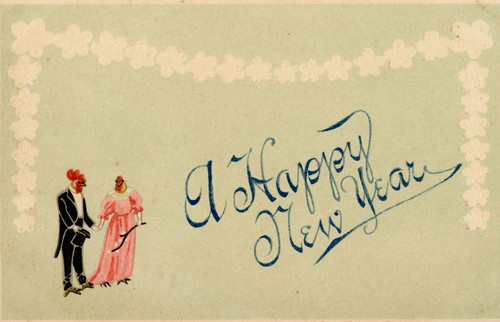 A Happy
New Year